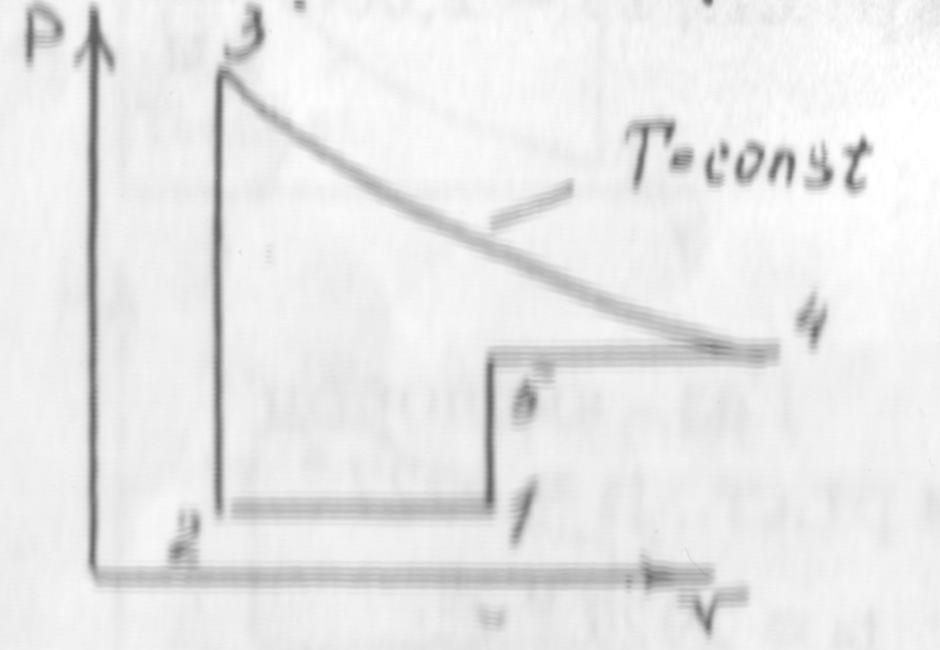 P
3
T=const
4
5
1
2
V